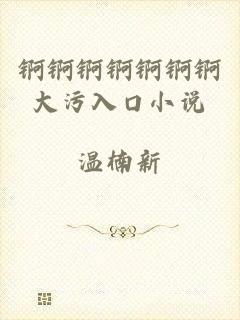 锕锕锕锕锕锕锕
大污入口小说
温楠新